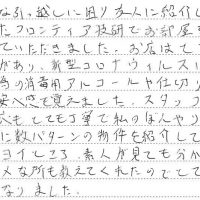 な引越しに困り友人に紹介し
たフロンティア技研でお部屋
ていただきました。お店はて
があり、新型コロナウィルス
為の消毒用アルコールや仕切り
安心感も覚えました。スタッフ
もとても丁寧で私のぼんやり
に数パターンの物件を紹介して
ヨイところ、素人が見ても分か
メな所も教えてくれたのでとて
なりました。